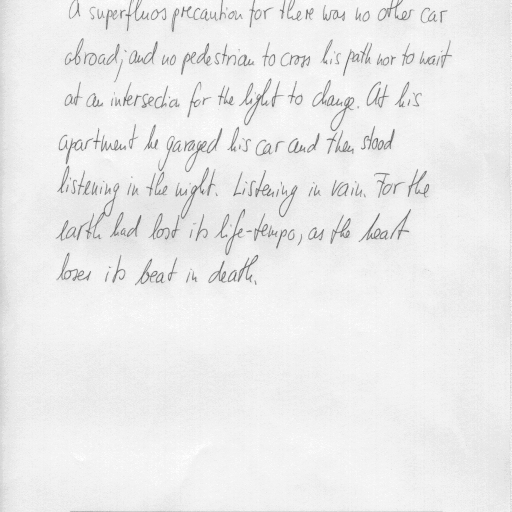 A superfluos precaution for there was no other car
abroad; and no pedestrian to cross his path nor to wait
at an intersection for the light to change. At his
apartment he garaged his car and then stood
listening in the night. Listening in vain. For the
earth had lost its life-tempo, as the heart
loses its beat in death.